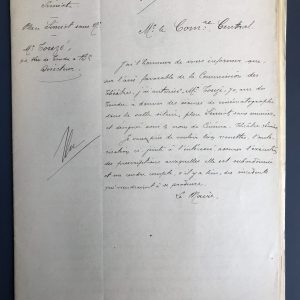 Place Simiot sans No
Mr Touzé,
Directeur
Vu
Mr. le Comre Central
J'ai l'honneur de vous informer que,
sur l'avis favorable de la Commission des
théâtres, j'ai autorisé Mr. Touzé,
à donner des séances de cinématographe
dans la salle située, place Simiot sans numéro,
et désignée sous le nom de Cinéma
Je vous prie de vouloir bien remettre l'auto-
risation ci-jointe à l'intéressé, assurer l'exécution
des prescriptions auxquelles elle est subordonnée
et me rendre compte, s'il y a lieu, des incidents
qui viendraient à se produire.
Le Maire